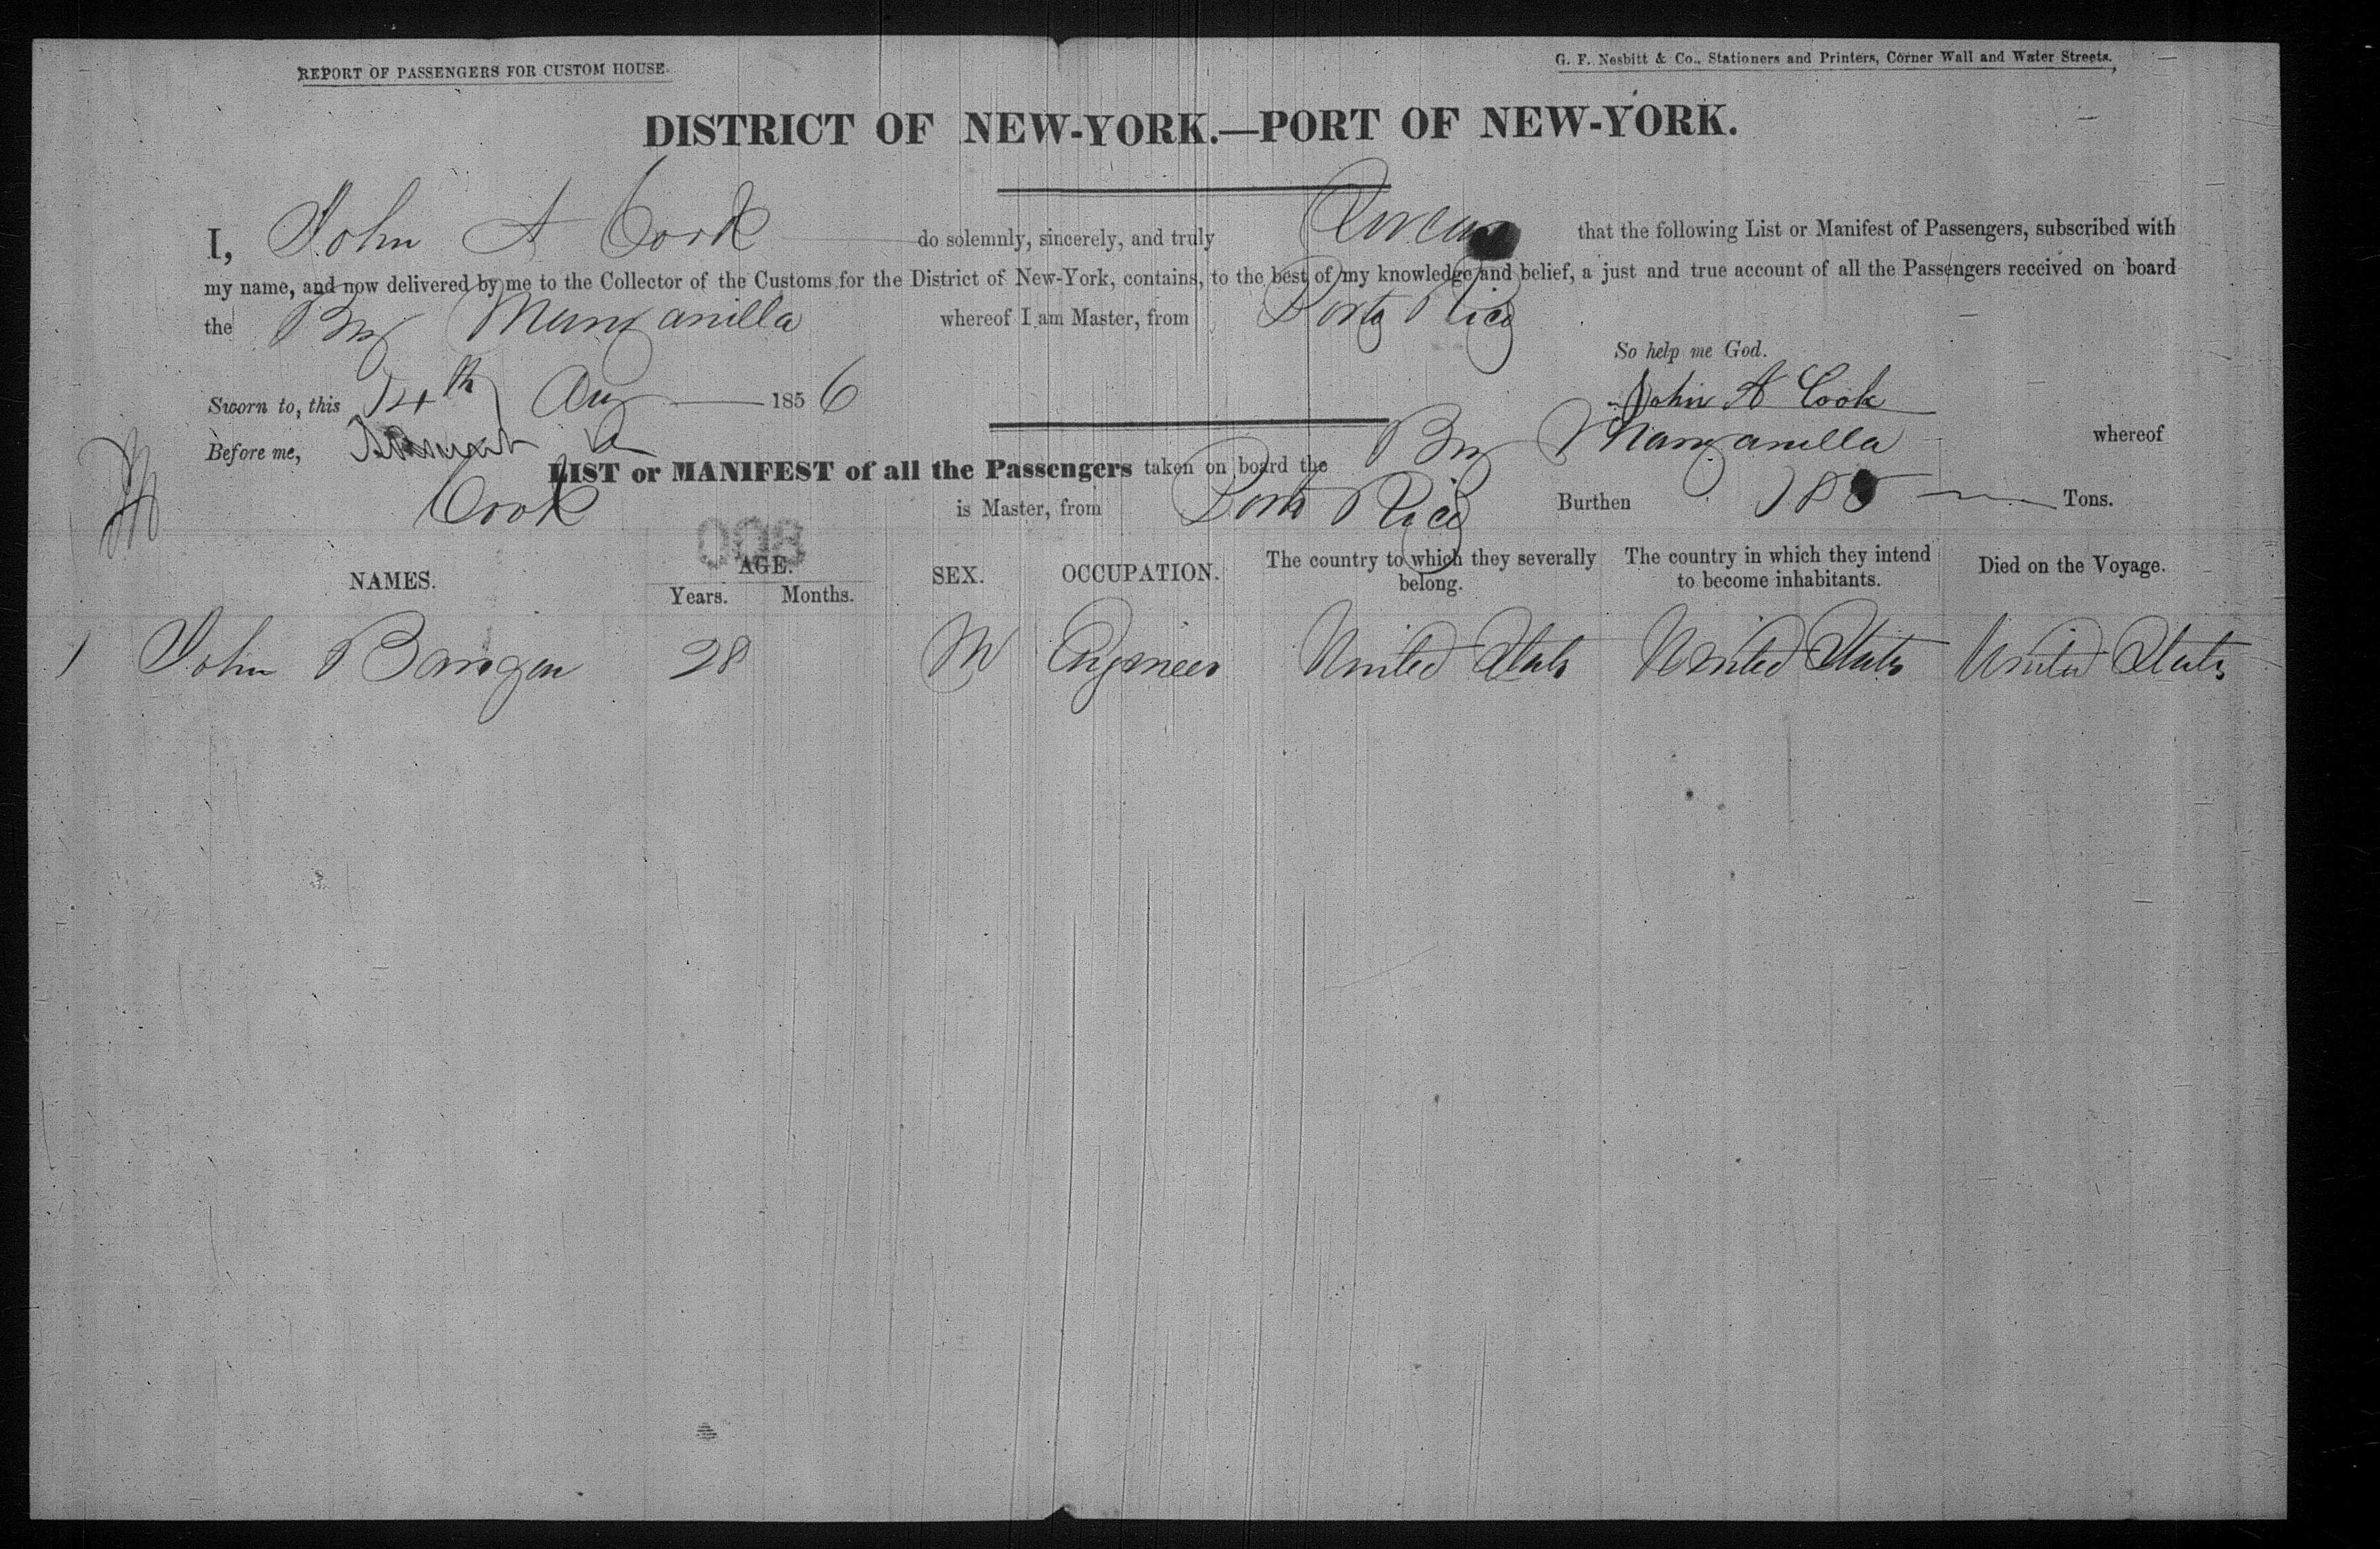 REPORT OF PASSENGERS FOR CUSTOM HOUSE.
G. F. Nesbitt & Co., Stationers and Printers, Corner Wall and Water Streets.
DISTRICT OF NEW-YORK.—PORT OF NEW-YORK.
I, John A Cook do solemnly, sincerely, and truly that the following List or Manifest of Passengers, subscribed with
my name, and now delivered by me to the Collector of the Customs for the District of New-York, contains, to the best of my knowledge and belief, a just and true account of all the Passengers received on board
the Brig Manzanilla whereof I am Master, from Porto Rico
So help me God.
Sworn to, this 14th Aug 1856 John A Cook
Before me,
LIST or MANIFEST of all the Passengers taken on board the Brig Manzanilla whereof
Cook is Master, from Porto Rico Burthen Tons.
008
NAMES. AGE. Years. Months. SEX. OCCUPATION. The country to which they severally belong. The country in which they intend to become inhabitants. Died on the Voyage.
1 John 28 M Engineer United States United States United States